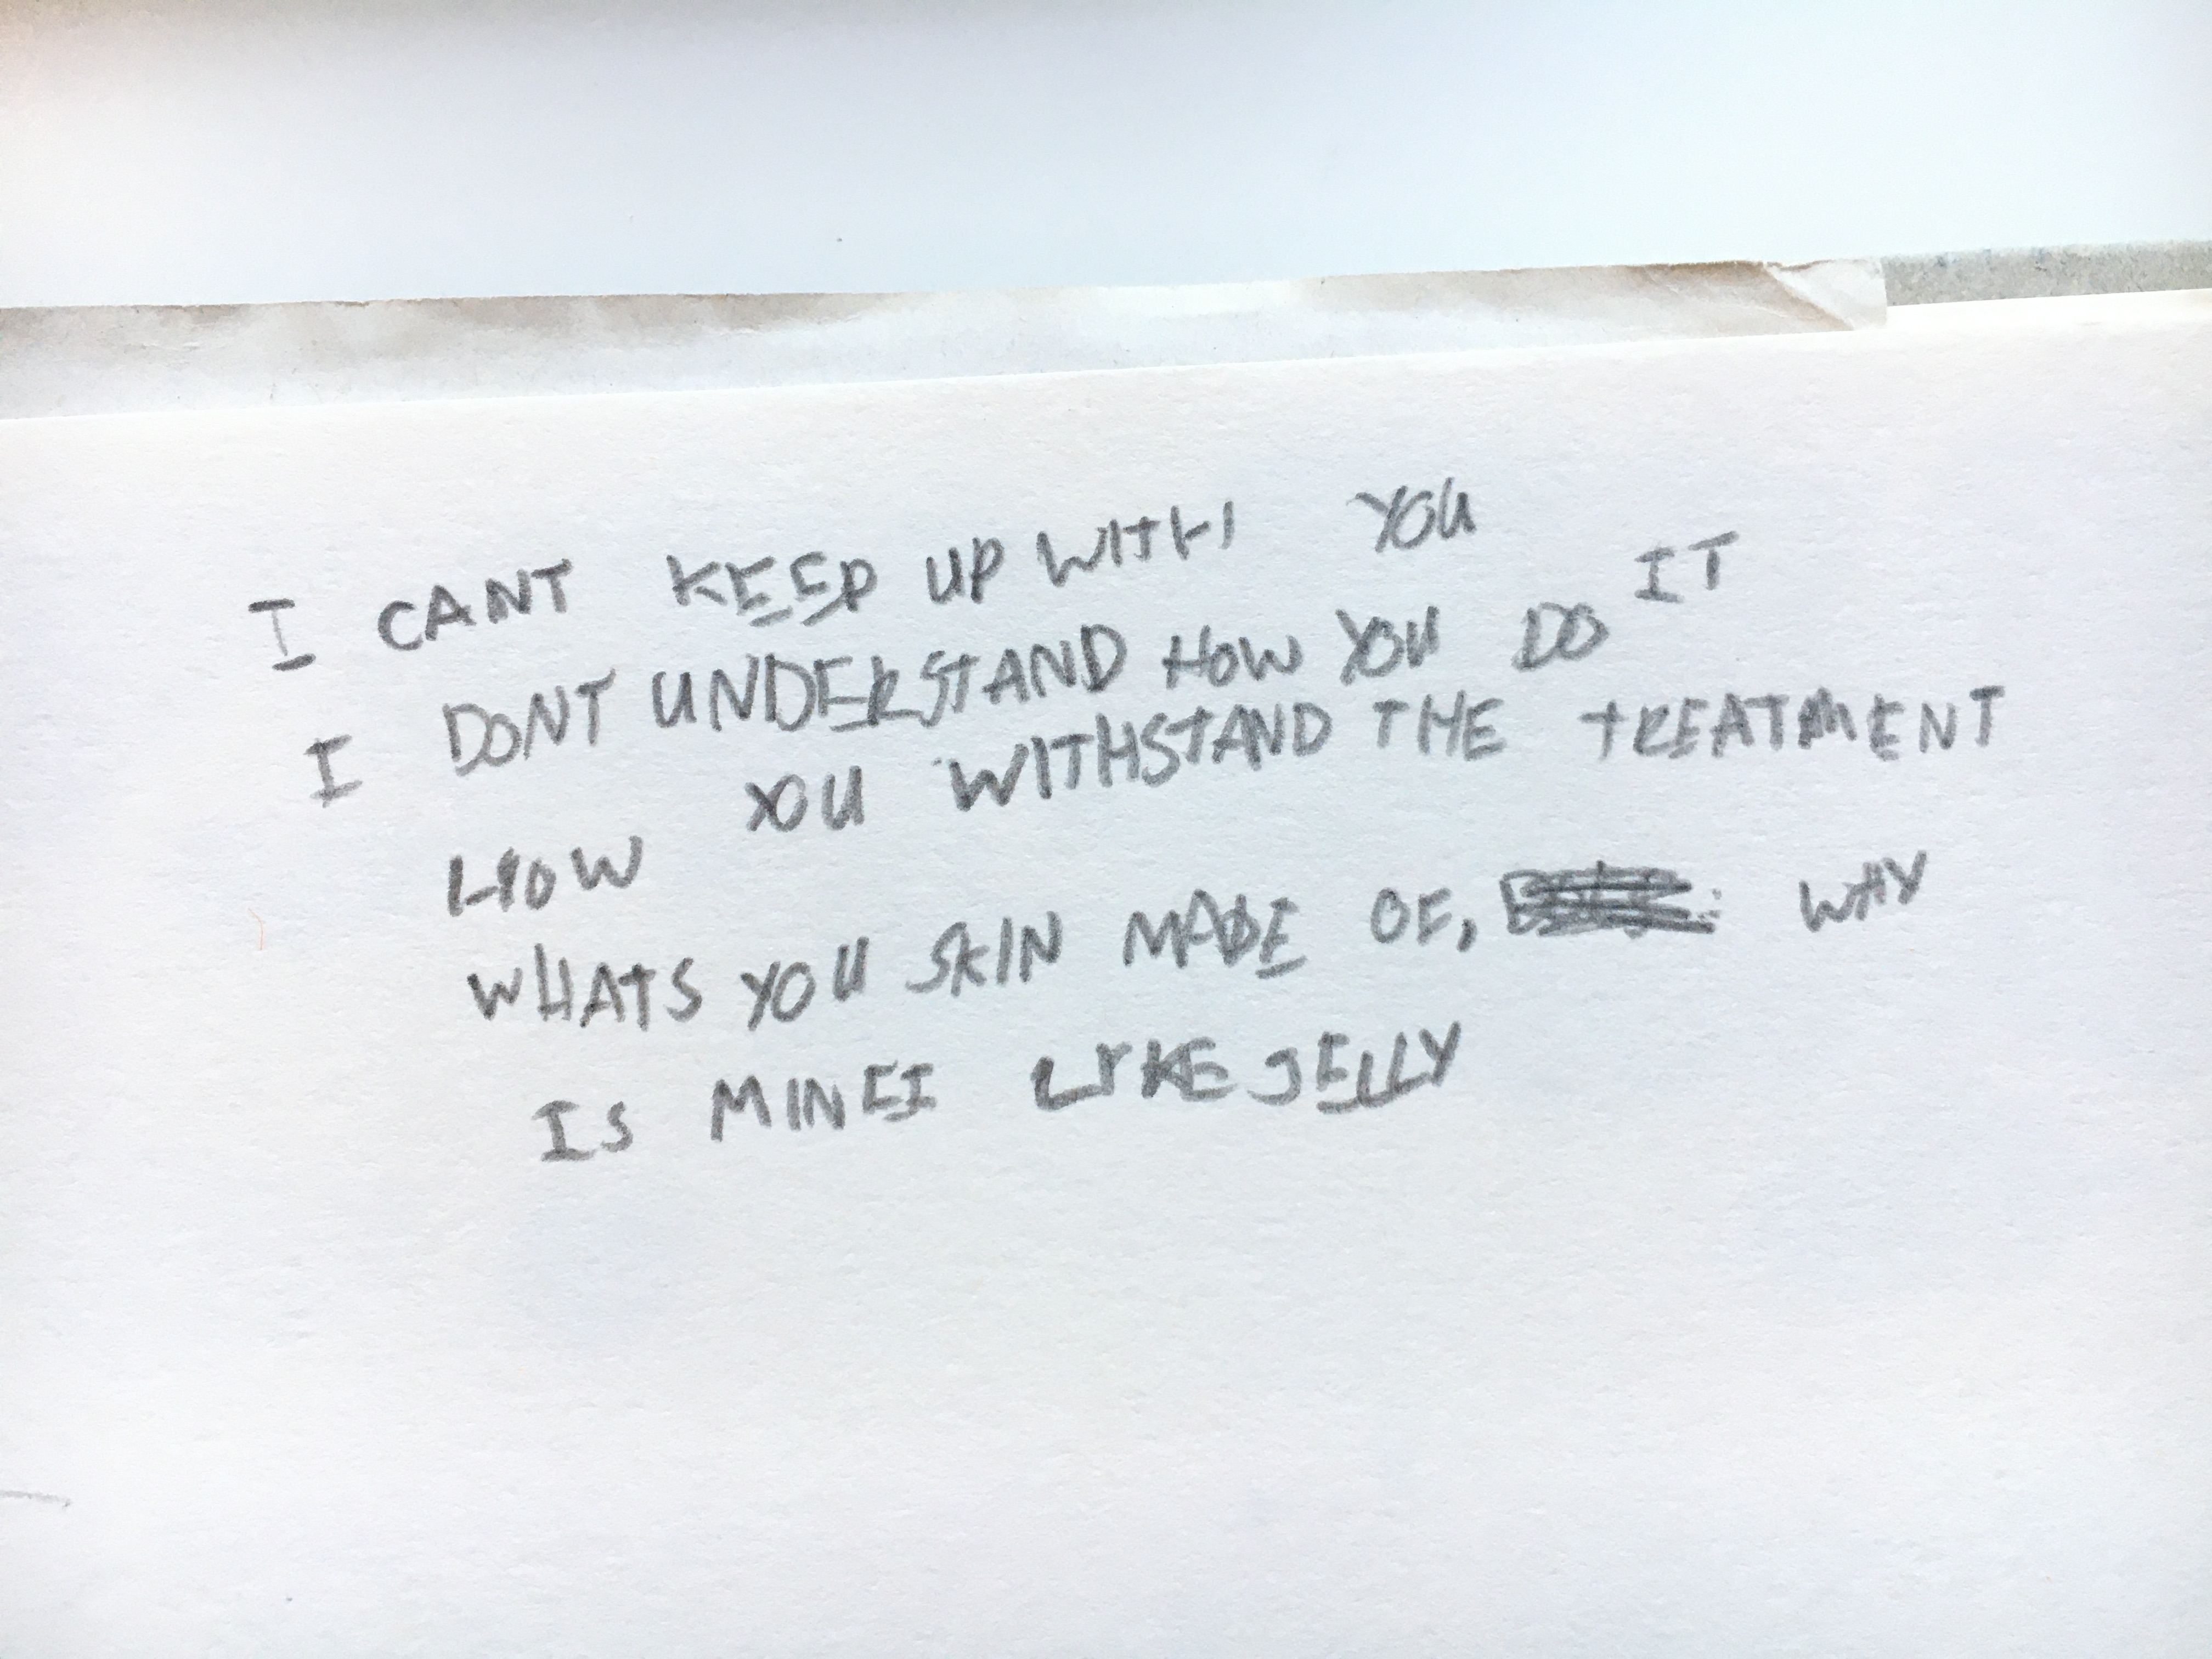 I CANT KEEP UP WITH YOU
I DONT UNDERSTAND HOW YOU DO IT
HOW YOU WITHSTAND THE TREATMENT
WHATS YOU SKIN MADE OF, WHY
IS MINE LIKE JELLY